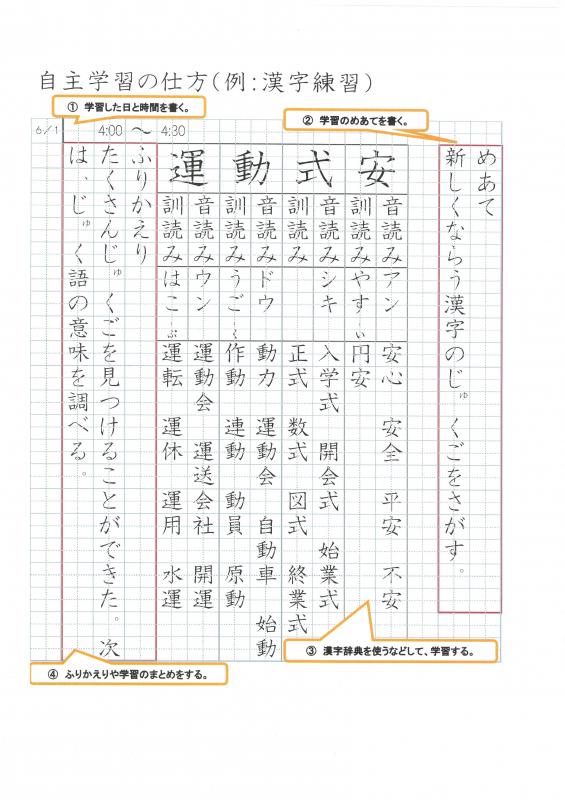 自主学習の仕方(例:漢字練習)
① 学習した日と時間を書く。
② 学習のめあてを書く。
6/1 4:00 ～ 4:30
めあて
新しくならう漢字のじゅくごをさがす。
安 式 動 運
音読み アン 安心 安全 平安 不安
訓読み やす―い 円安
音読み シキ 入学式 開会式 始業式
訓読み 正式 数式 図式 終業式
音読み ドウ 動力 運動会 自動車 始動
訓読み うご―く 作動 連動 動員 原動
音読み ウン 運動会 運送会社 開運
訓読み はこ―ぶ 運転 運休 運用 水運
ふりかえり
たくさんじゅくごを見つけることができた。次
は、じゅく語の意味を調べる。
③ 漢字辞典を使うなどして、学習する。
④ ふりかえりや学習のまとめをする。